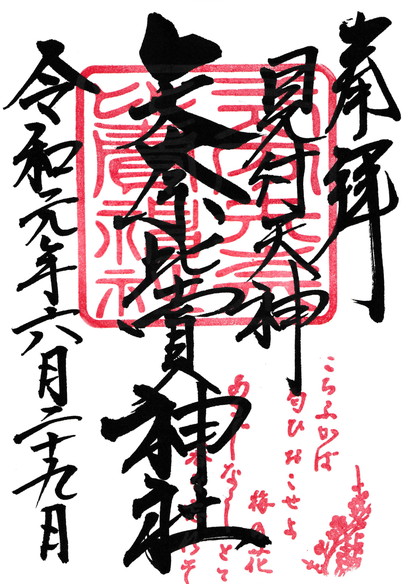 奉拝
見付天神
矢奈比賣神社
令和元年六月二十九日
こちふかば
匂ひおこせよ
梅の花
あるじなしとて